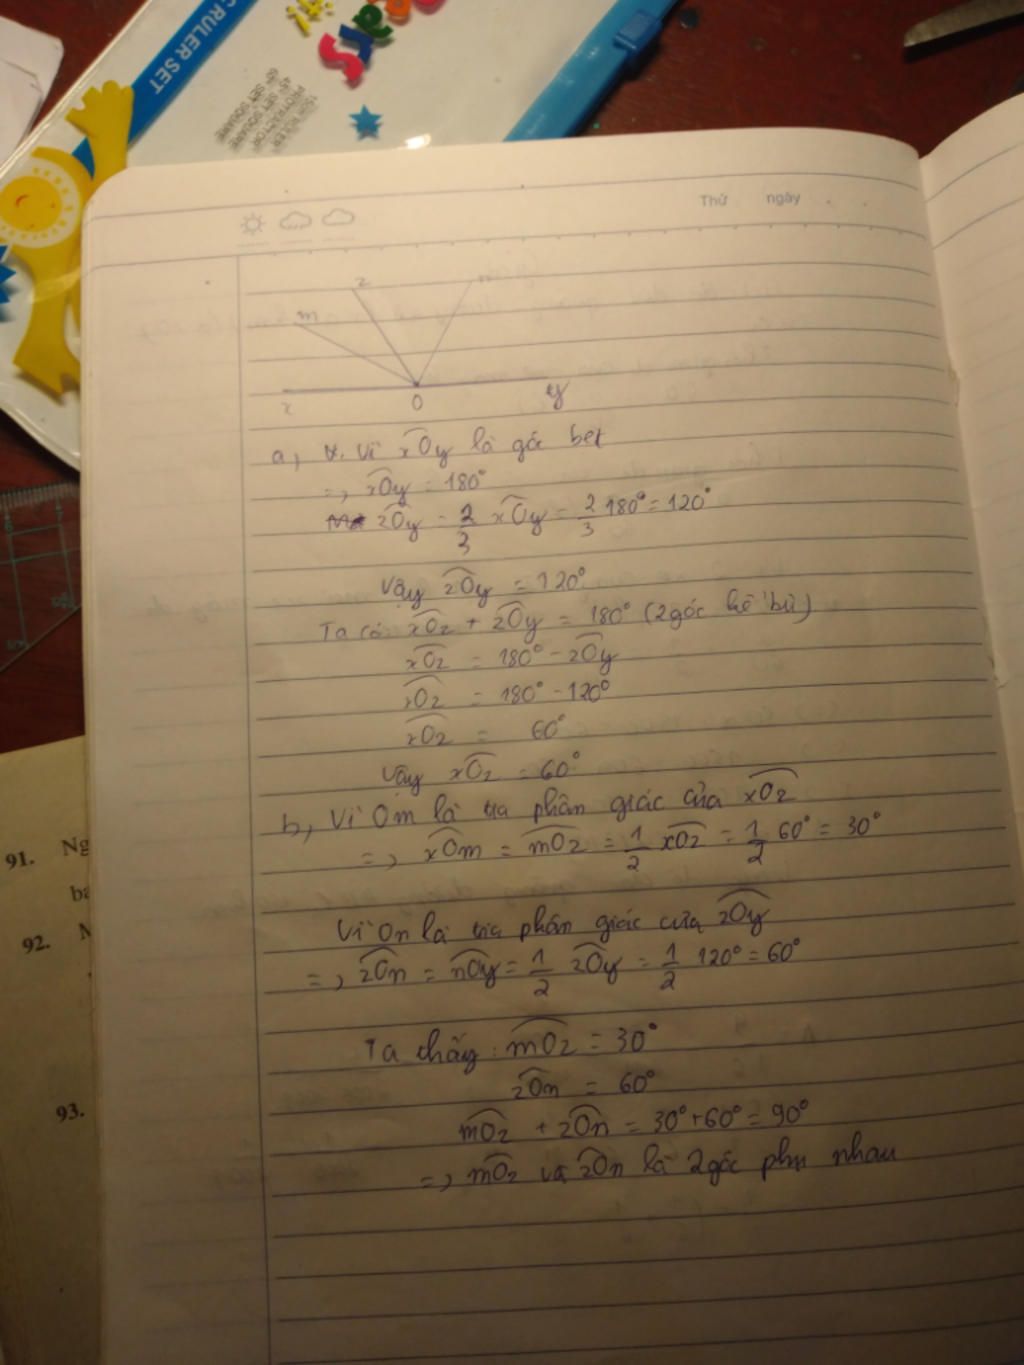 RULER SET
15CM RULER
PROTRACTOR
45° SET SQUARE
60° SET SQUARE
Thứ ngày
z
m
x
O
y
a, Vì xOy là góc bẹt
=> xOy = 180°
zOy = 2/3 xOy = 2/3 180° = 120°
Vậy zOy = 120°
Ta có: xOz + zOy = 180° (2 góc kề bù)
xOz = 180° - zOy
xOz = 180° - 120°
xOz = 60°
Vậy xOz = 60°
b, Vì Om là tia phân giác của xOz
=> xOm = mOz = 1/2 xOz = 1/2 60° = 30°
Vì On là tia phân giác của zOy
=> zOn = nOy = 1/2 zOy = 1/2 120° = 60°
Ta thấy: mOz = 30°
zOn = 60°
mOz + zOn = 30° + 60° = 90°
=> mOz và zOn là 2 góc phụ nhau
91. Ng
92.
93.